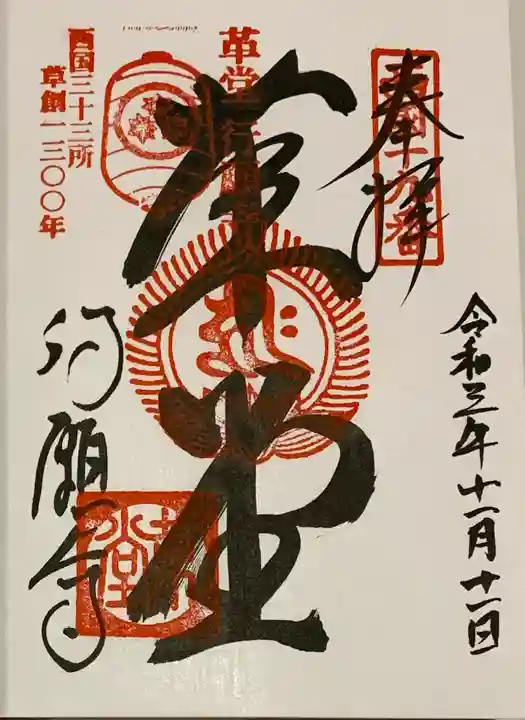 奉拝
西国十九番
令和三年十一月十一日
革堂
革堂行願寺
西国三十三所
草創一三〇〇年
行願寺